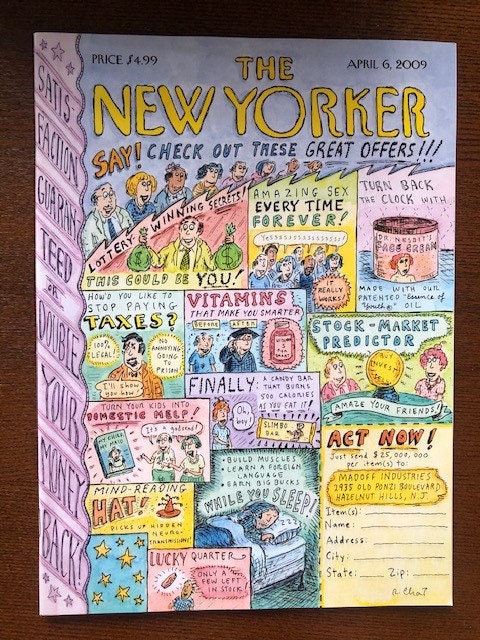 PRICE $4.99
THE
APRIL 6, 2009
NEW YORKER
SAY! CHECK OUT THESE GREAT OFFERS!!!
SATIS-
FACTION
GUARAN-
TEED
OR
DOUBLE
YOUR
MONEY
BACK!
LOTTERY-WINNING SECRETS!
THIS COULD BE YOU!
$
$
AMAZING SEX
EVERY TIME
FOREVER!
IT
REALLY
WORKS!
TURN BACK
THE CLOCK WITH
DR. NESBIT'S
FACE CREAM
MADE WITH OUR
PATENTED "Essence of
Youth®" OIL
HOW'D YOU LIKE TO
STOP PAYING
TAXES?
100%
LEGAL!
NO
ANNOYING
GOING
TO
PRISON
I'll show
you how
VITAMINS
THAT MAKE YOU SMARTER
BEFORE
AFTER
STOCK-MARKET
PREDICTOR
BUY
INVEST
AMAZE YOUR FRIENDS!
FINALLY: A CANDY BAR
THAT BURNS
500 CALORIES
AS YOU EAT IT!
Oh,
boy!
SLIMBO
BAR
TURN YOUR KIDS INTO
DOMESTIC HELP!
It's a godsend!
MY CHILD,
MY MAID
ACT NOW!
Just send $25,000,000
per item(s) to:
MADOFF INDUSTRIES
2935 OLD PONZI BOULEVARD
HAZELNUT HILLS, N.J.
Item(s):
Name:
Address:
City:
State:
Zip:
R. Chast
MIND-READING
HAT!
PICKS UP HIDDEN
NEURO-
TRANSMISSIONS!
• BUILD MUSCLES
• LEARN A FOREIGN
LANGUAGE
• EARN BIG BUCKS
WHILE YOU SLEEP!
ZZZ
LUCKY QUARTER
ONLY A
FEW LEFT
IN STOCK!